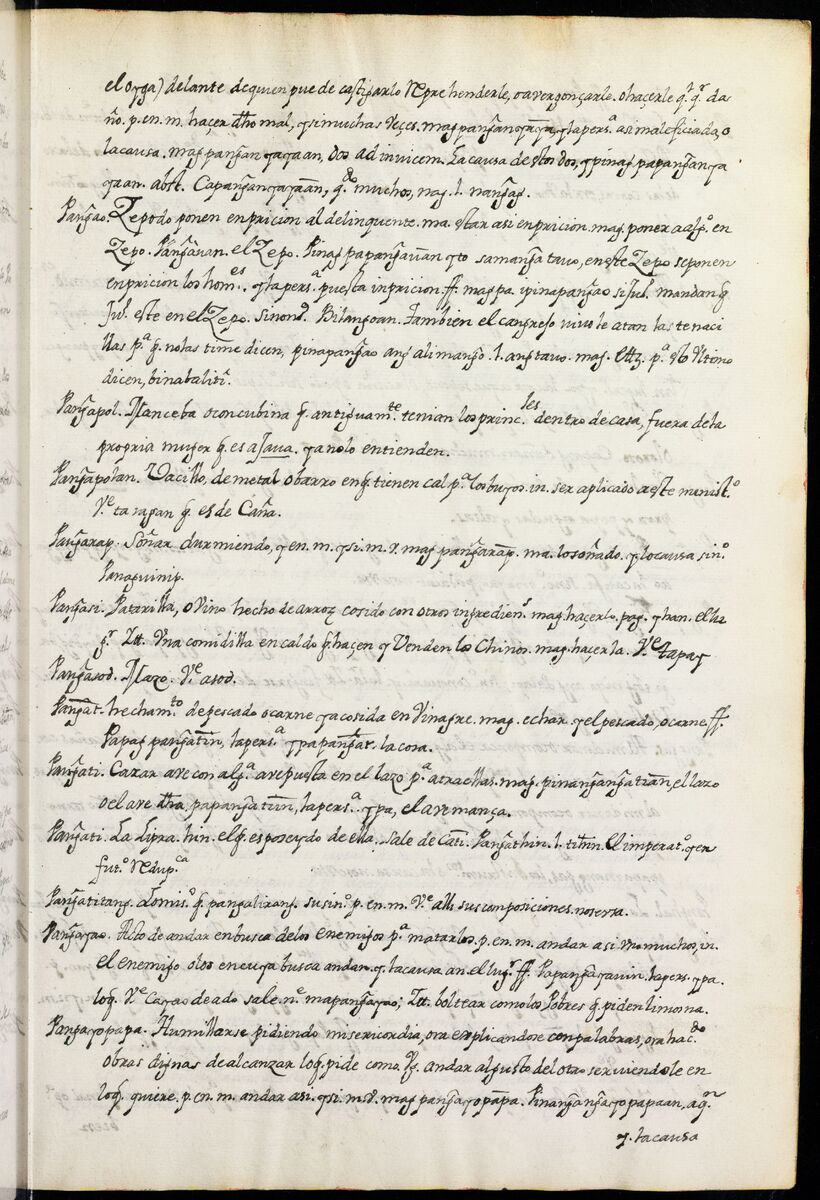 el oyga) delante de quien puede castigarlo Reprehenderle, o avergonçarle. o haçerle q.l q.r da
ño. p. en. m. haçer dho mal, y si muchas veçes. mag pang̃an y ala pers.a asi maleficiada, o
la causa. mag pang̃an yayaan, dos ad invicem. La causa destos dos, ypinag papang̃an ya
yaan. abst. Capang̃an yayaan, q.do muchos, nag. l. nang̃ag.
Pang̃ao. Zepo do ponen en pricion al delinquente. ma. estar asi en pricion. mag. poner a alg.o en
Zepo. Pang̃auan. el Zepo. Pinag papang̃auan yto sa mang̃a tauo, en este Zepo se ponen
en pricion los hom.es, y la pers.a puesta in pricion. ff. magpa. ipinapang̃ao si Ju.o mandan q̃
Ju.o este en el Zepo. sinon.o Bilangoan. tambien el cangrejo vivo le atan las tenaci
llas p.a q̃ no las time dicen, pinapang̃ao ang alimang̃o. l. ang tauo. mag. ettz. p.a esto ultimo
dicen, binabaliti.
Pang̃apol. Manceba o concubina q̃ antiguam.te tenian los princ.les dentro de casa, fuera dela
propria muger q̃ es asaua. ya no lo entienden.
Pang̃apolan. Vacillo, de metal o barro en q̃ tienen cal p.a los buyos. in. ser aplicado a este minist.o
V.e ta ragan q̃ es de Caña.
Pang̃arap. Soñar durmiendo, y en. m. y si. m. v. mag pang̃arap. ma. lo soñado. y lo causa sin.o
Panaguinip.
Pang̃asi. Patarilla, o Vino hecho de arroz cosido con otros ingredien.s mag. haçerlo. pag. y han. el lu
g.r Itt. Una comidilla en caldo q̃ haçen y Venden los Chinos. mag. haçerla. V.e tapay
Pang̃asod. Mazo. V.e asod.
Pang̃at. hecham.to de pescado o carne ya cosida en Vinagre. mag. echar. y el pescado, o carne ff.
Papag pang̃atin, la pers.a ypapang̃at. la cosa.
Pang̃ati. Cazar ave con alg.a ave puesta en el lazo p.a atraellas. mag. pinang̃ang̃atian, el lazo
o el ave dha, papang̃atiin, la pers.a ypa, el ave mança.
Pang̃ati. La Lipra. hin. el q̃ es poseydo de ella. Sale de Cati. Pang̃athin. l. tihin. El imperat.o y en
fut.o Redup.ca
Pang̃atitang. Lo mis.o q̃ pang̃alirang. su sin.o p. en. m. V.e alli sus composiciones. no se usa.
Pang̃ayao. Acto de andar en busca delos enemigos p.a matarlos. p. en. m. andar asi Uno muchos, in.
el enemigo olos en cuya busca andan. y. la causa an. el lug.r ff. Papang̃ayauin. la pers. ypa.
lo q̃. V.e Cayao de ado sale. n.e mapang̃ayao; Itt. boltear como los Pobres q̃ piden limosna.
Pang̃ayopapa. Humillarse pidiendo misericordia, ora explicandose con palabras, ora hac.do
obras dignas de alcanzar lo q̃ pide como. V.g. andar al gusto del otro serviendole en
lo q̃ quiere. p. en. m. andar asi. y si. m. v. mag pang̃ayopapa. Pinang̃ang̃ayopapaan, aq.n
y. la causa